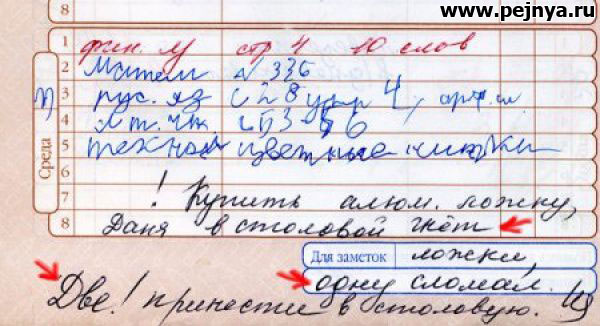 www.pejnya.ru
8
1 фин. у стр 4 10 слов
2 Матем №336
3 рус. яз с 28 упр 4,
4 лит. чт с 53-56
5 технол цветные нитки
6
7 ! Купить алюм. ложку,
8 Даня в столовой гнёт
Среда
Для заметок ложки,
одну сломал.
Две! принести в столовую.